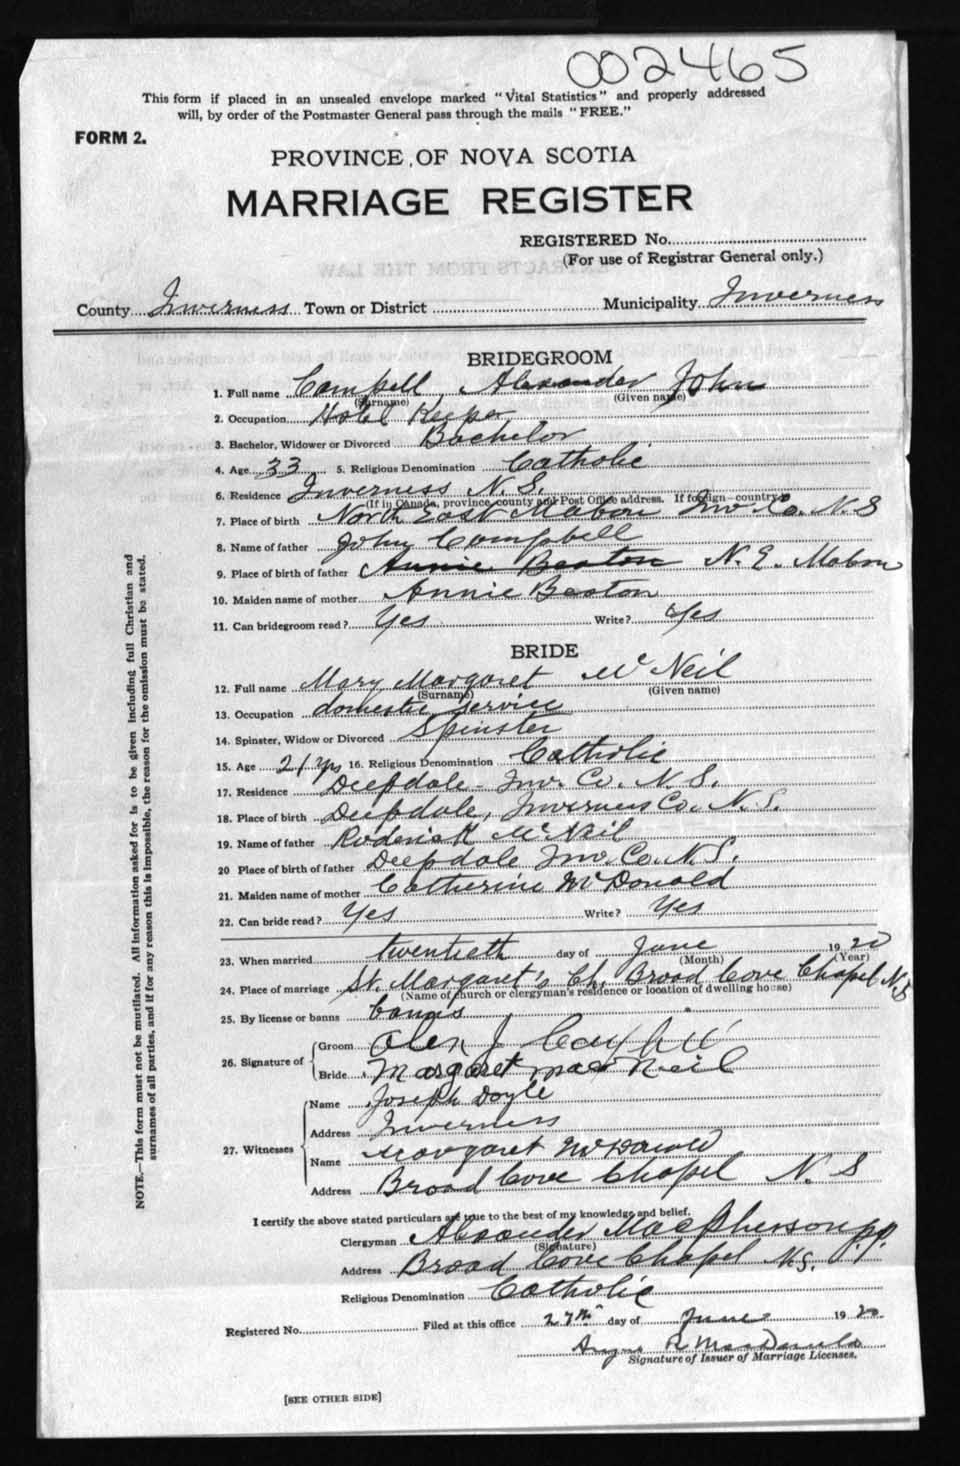 002465
This form if placed in an unsealed envelope marked "Vital Statistics" and properly addressed
will, by order of the Postmaster General pass through the mails "FREE."
FORM 2.
PROVINCE OF NOVA SCOTIA
MARRIAGE REGISTER
REGISTERED No.
(For use of Registrar General only.)
County Inverness Town or District Municipality Inverness
BRIDEGROOM
1. Full name Campbell, Alexander John
(Surname) (Given name)
2. Occupation Hotel Keeper
3. Bachelor, Widower or Divorced Bachelor
4. Age 33 5. Religious Denomination Catholic
6. Residence Inverness N.S.
(If in Canada, province, county and Post Office address. If foreign country)
7. Place of birth North East Mabou Inv. Co. N.S
8. Name of father John Campbell
9. Place of birth of father Annie Beaton N.E. Mabou
10. Maiden name of mother Annie Beaton
11. Can bridegroom read? Yes Write? Yes
BRIDE
12. Full name Mary Margaret McNeil
(Surname) (Given name)
13. Occupation domestic service
14. Spinster, Widow or Divorced Spinster
15. Age 21 yrs 16. Religious Denomination Catholic
17. Residence Deepdale - Inv. Co. N.S.
18. Place of birth Deepdale, Inverness Co. N.S.
19. Name of father Roderick McNeil
20 Place of birth of father Deepdale Inv. Co. N.S.
21. Maiden name of mother Catherine McDonald
22. Can bride read? Yes Write? Yes
23. When married twentieth day of June 1920
(Month) (Year)
24. Place of marriage St. Margaret's Ch. Broad Cove Chapel N.S
(Name of church or clergyman's residence or location of dwelling house)
25. By license or banns banns
26. Signature of Groom Alex J Campbell
Bride Margaret MacNeil
27. Witnesses Name Joseph Doyle
Address Inverness
Name Margaret McDonald
Address Broad Cove Chapel N.S
I certify the above stated particulars are true to the best of my knowledge and belief.
Clergyman Alexander MacPherson p.p.
(Signature)
Address Broad Cove Chapel N.S.
Religious Denomination Catholic
Registered No. Filed at this office 27th day of June 1920
Angus R MacDonald
Signature of Issuer of Marriage Licenses.
[SEE OTHER SIDE]
NOTE.—This form must not be mutilated. All information asked for is to be given including full Christian and
surnames of all parties, and if for any reason this is impossible, the reason for the omission must be stated.